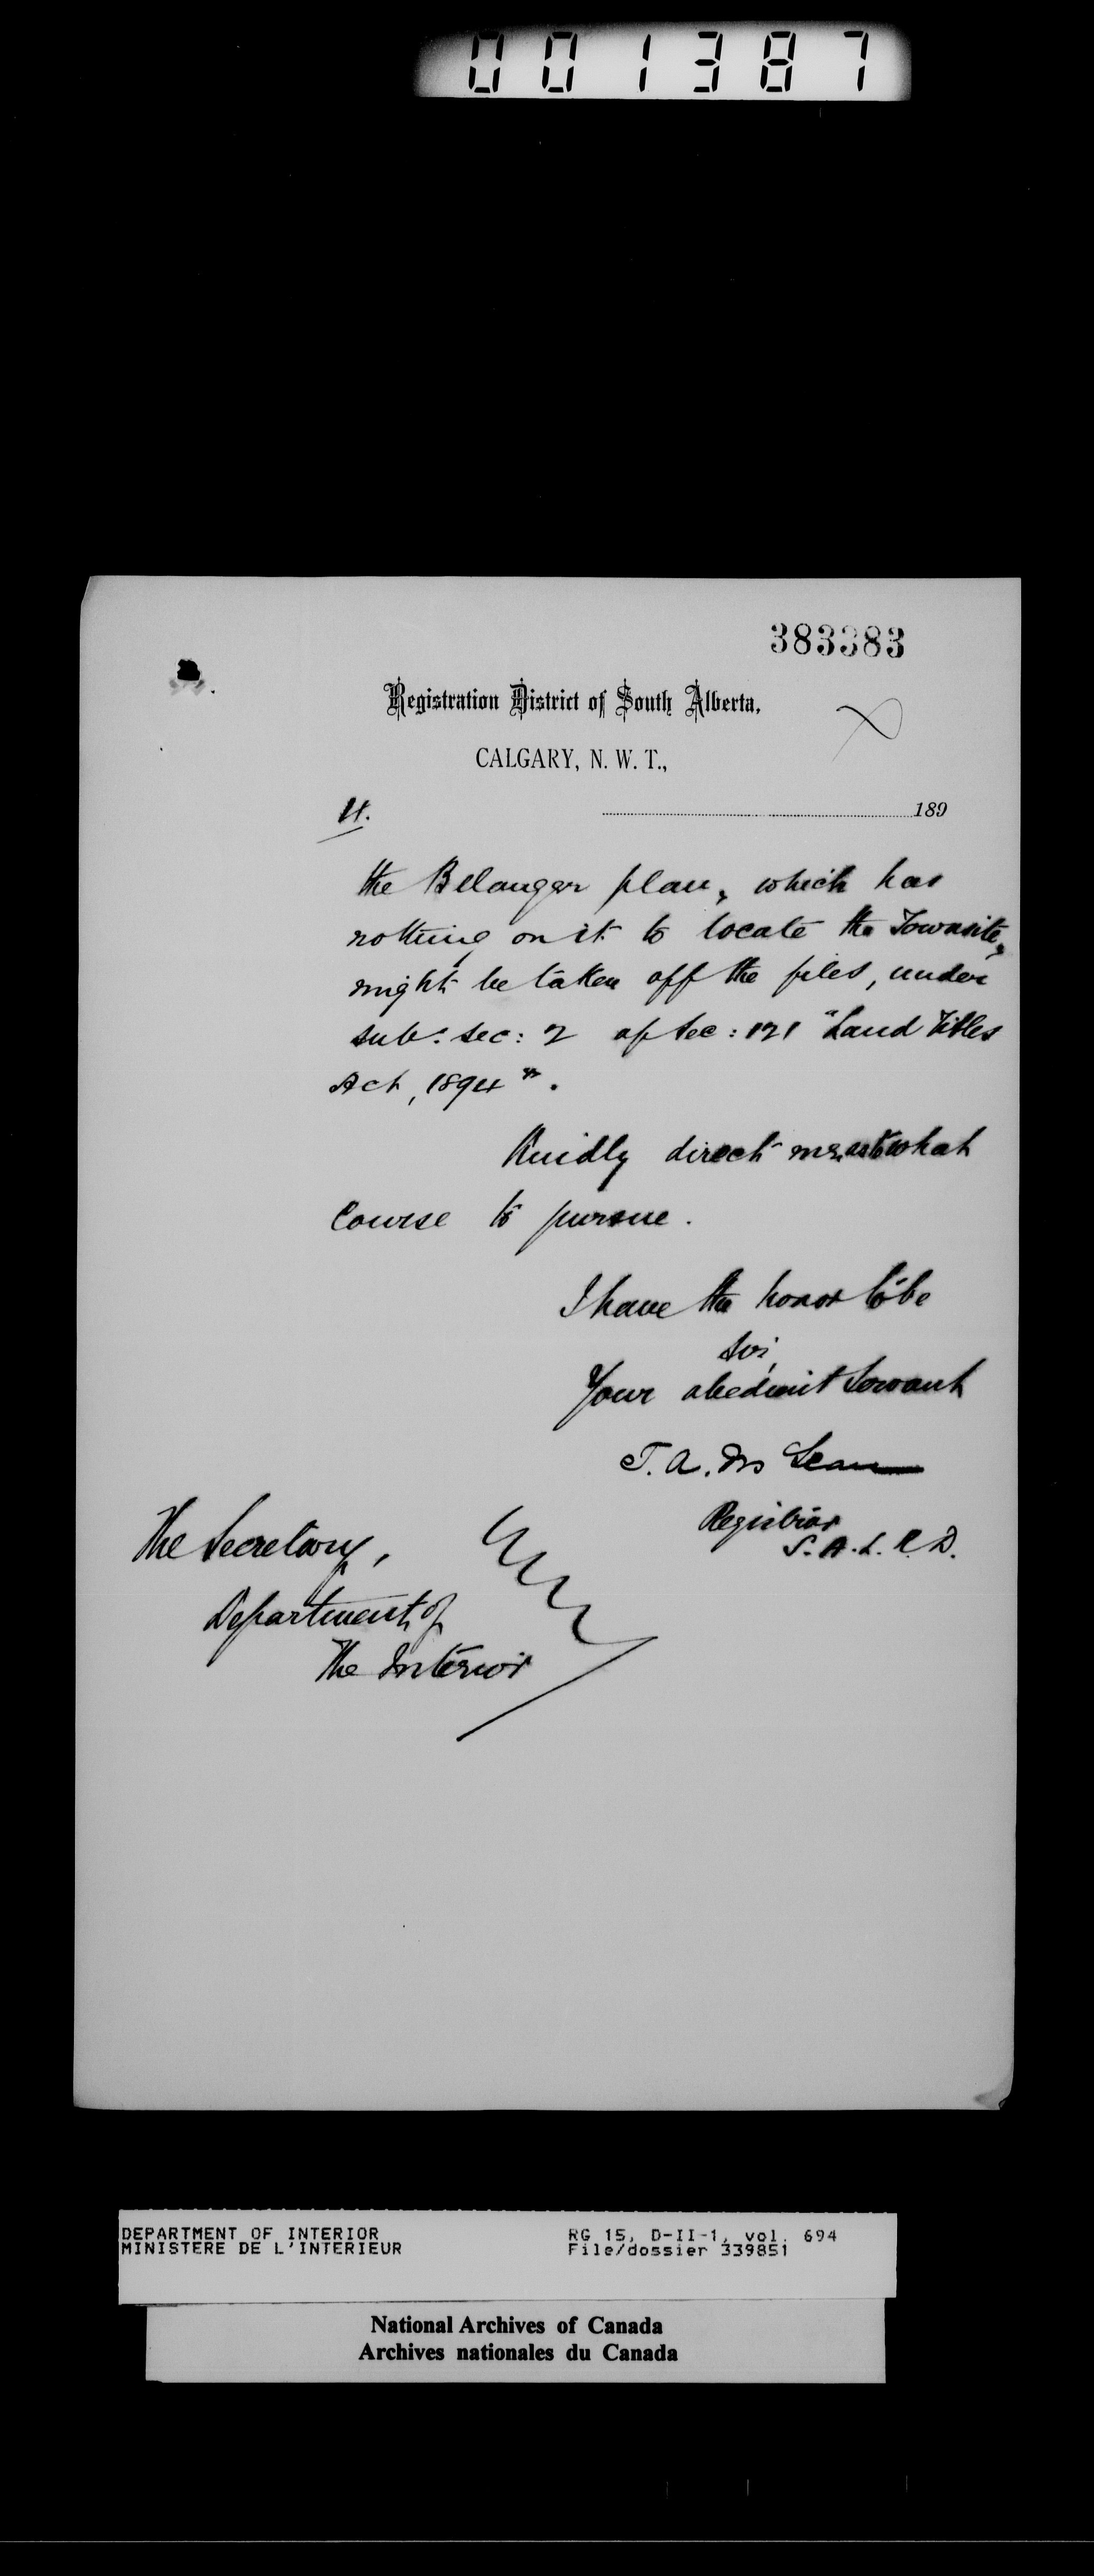 001387
383383
Registration District of South Alberta,
CALGARY, N. W. T.,
4.
189
the Belanger plan, which has
nothing on it to locate the Townsite,
might be taken off the files, under
sub: sec: 2 of Sec: 121 "Land Titles
Act, 1894".
Kindly direct me as to what
Course to pursue.
I have the honor to be
Sir,
Your obedient Servant
T. A. Mc Lean
Registrar
S. A. L. R. D.
The Secretary,
Department of
The Interior
DEPARTMENT OF INTERIOR
MINISTERE DE L'INTERIEUR
RG 15, D-II-1, vol. 694
File/dossier 339851
National Archives of Canada
Archives nationales du Canada